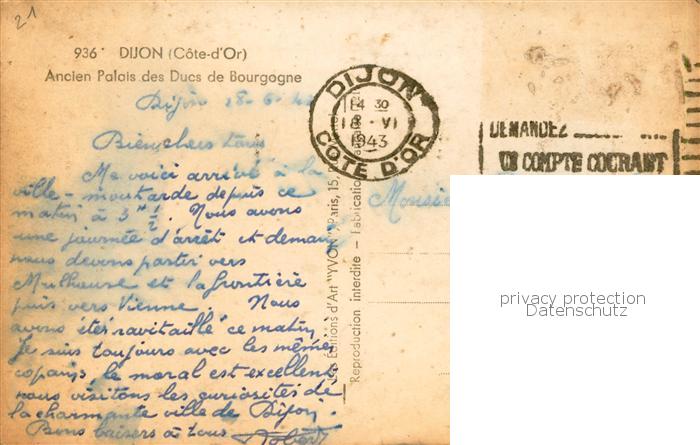 21
936 DIJON (Côte-d'Or)
Ancien Palais des Ducs de Bourgogne
Dijon 18-6-43
Bien chers tous
Me voici arrivé à la
ville-moutarde depuis ce
matin à 3 H ½. Nous avons
une journée d'arrêt et demain
nous devons partir vers
Mulhouse et la frontière
puis vers Vienne. Nous
avons été ravitaillé ce matin.
Je suis toujours avec les mêmes
copains, le moral est excellent,
nous visitons les curiosités de
la charmante ville de Dijon.
Bons baisers à tous Robert
DIJON
14 30
18 - VI
1943
COTE D'OR
DEMANDEZ
UN COMPTE COURANT
Monsie
Les Editions d'Art "YVON", Paris, 15,
Reproduction interdite - Fabrication
privacy protection
Datenschutz